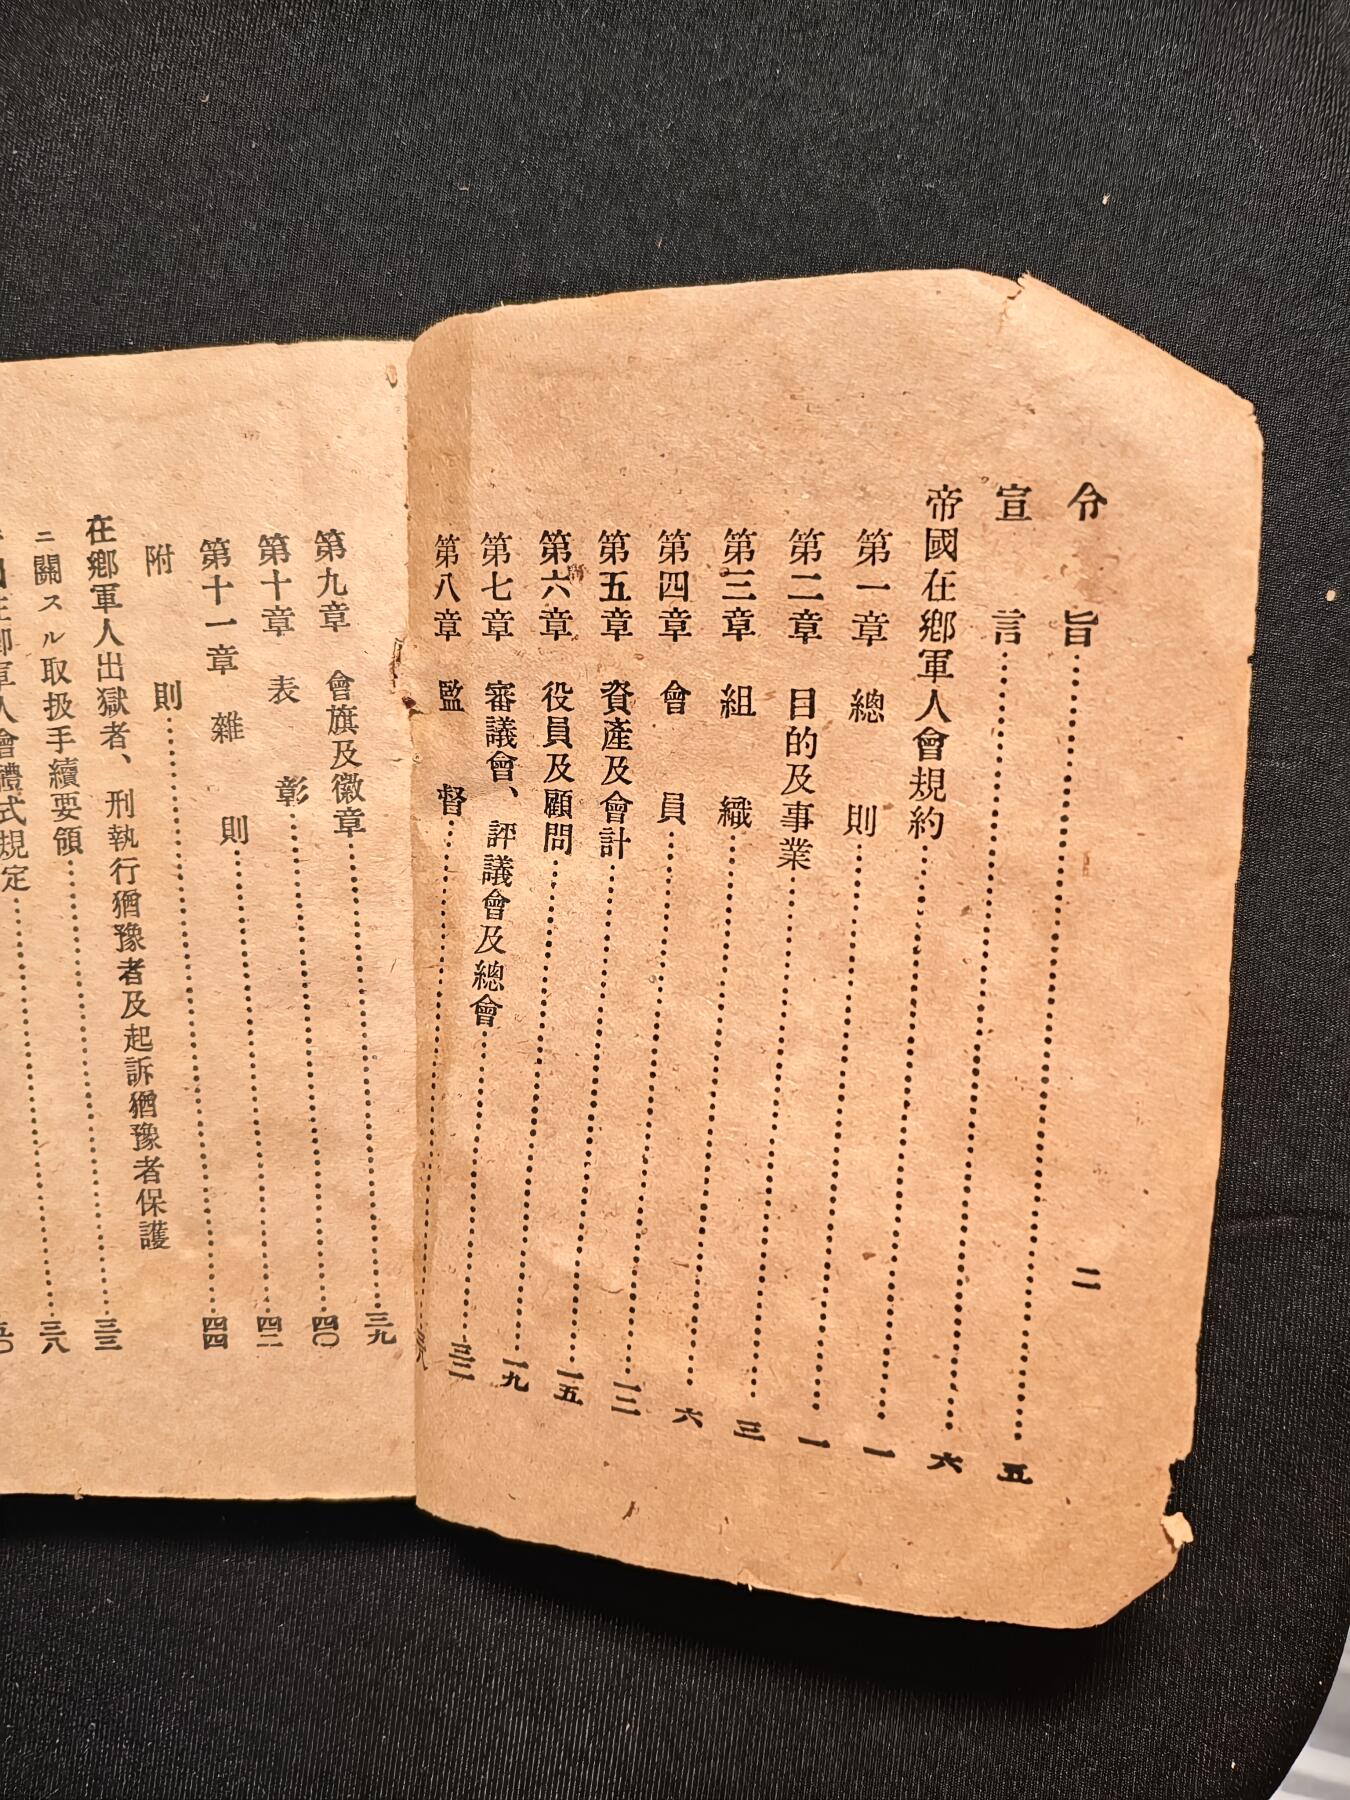 二
令旨……五
宣言……六
帝國在鄉軍人會規約……一
第一章 總則……一
第二章 目的及事業……三
第三章 組織……六
第四章 會員……一二
第五章 資產及會計……一五
第六章 役員及顧問……一九
第七章 審議會、評議會及總會……三二
第八章 監督……三八
第九章 會旗及徽章……三九
第十章 表彰……四〇
第十一章 雜則……四二
附則……四四
在鄉軍人出獄者、刑執行猶豫者及起訴猶豫者保護
ニ關スル取扱手續要領……三三
在鄉軍人會禮式規定……三八